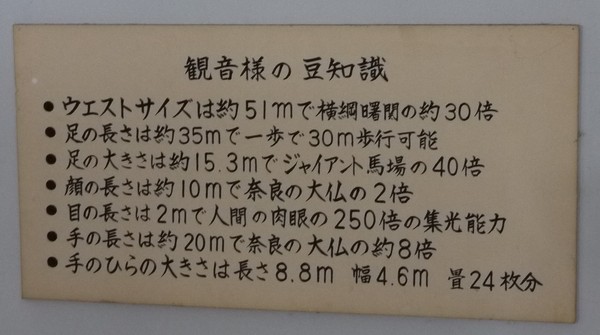 観音様の豆知識
●ウエストサイズは約51mで横綱曙関の約30倍
●足の長さは約35mで一歩で30m歩行可能
●足の大きさは約15.3mでジャイアント馬場の40倍
●顔の長さは約10mで奈良の大仏の2倍
●目の長さは2mで人間の肉眼の250倍の集光能力
●手の長さは約20mで奈良の大仏の約8倍
●手のひらの大きさは長さ8.8m 幅4.6m 畳24枚分